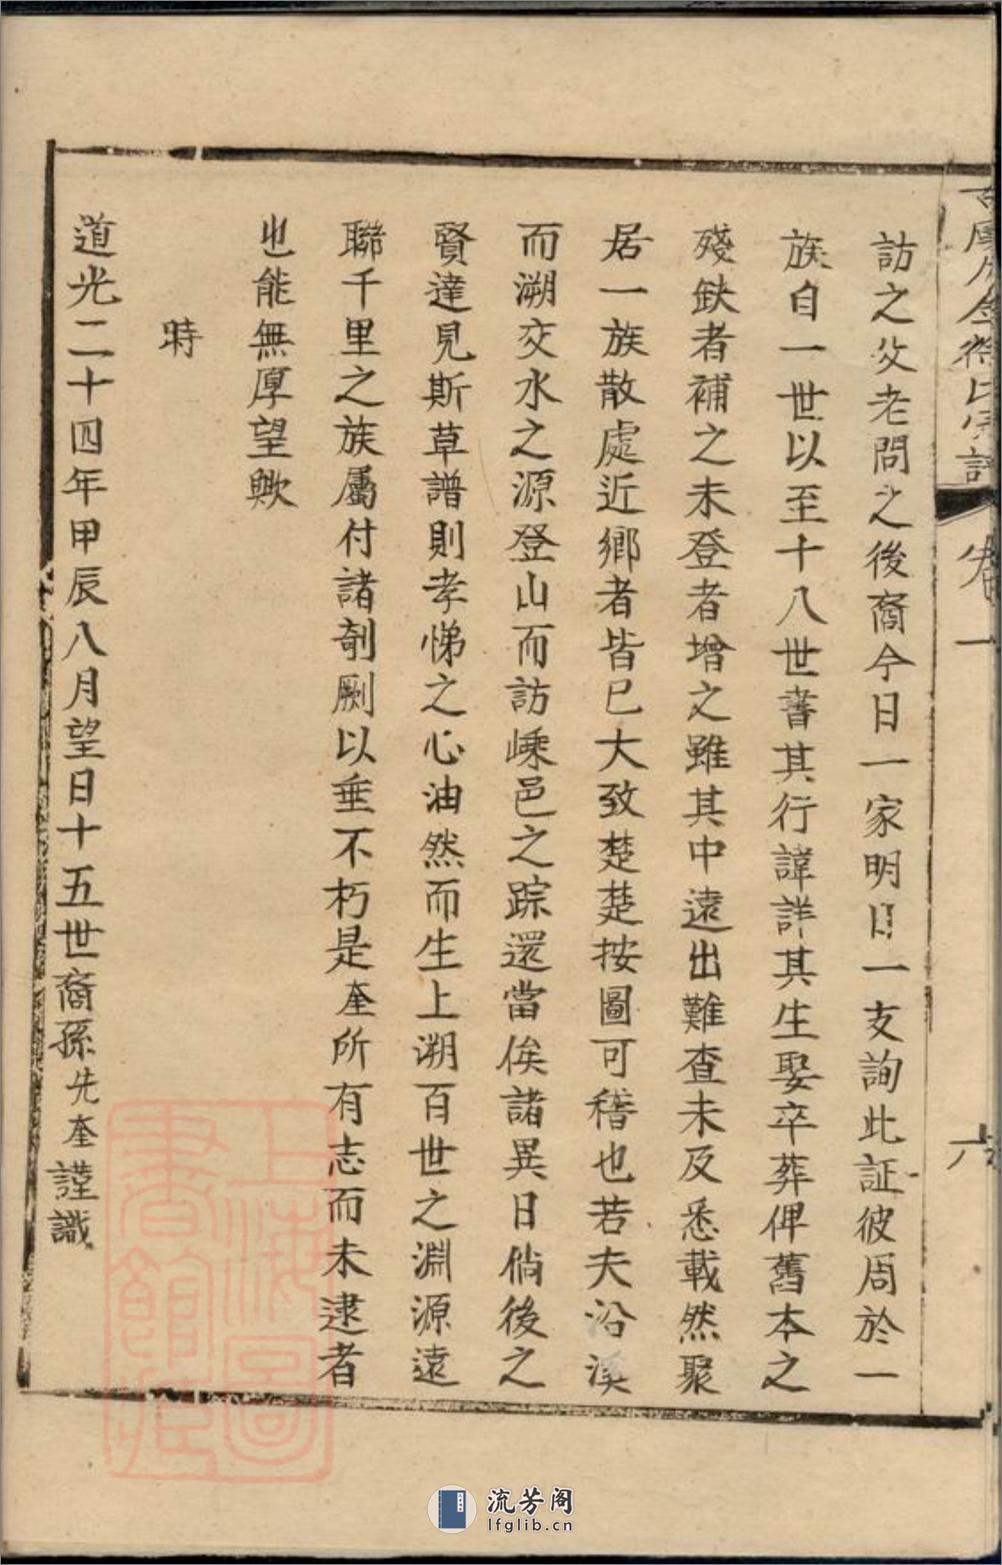 卷一
六
訪之父老問之後裔今日一家明日一支詢此証彼周於一
族自一世以至十八世書其行諱詳其生娶卒葬俾舊本之
殘缺者補之未登者增之雖其中遠出難查未及悉載然聚
居一族散處近鄉者皆已大致楚楚按圖可稽也若夫沿溪
而溯交水之源登山而訪嵊邑之踪還當俟諸異日倘後之
賢達見斯草譜則孝悌之心油然而生上溯百世之淵源遠
聯千里之族屬付諸剞劂以垂不朽是奎所有志而未逮者
也能無厚望歟
時
道光二十四年甲辰八月望日十五世裔孫先奎謹識
上海圖
書館藏
流芳阁
lfglib.cn